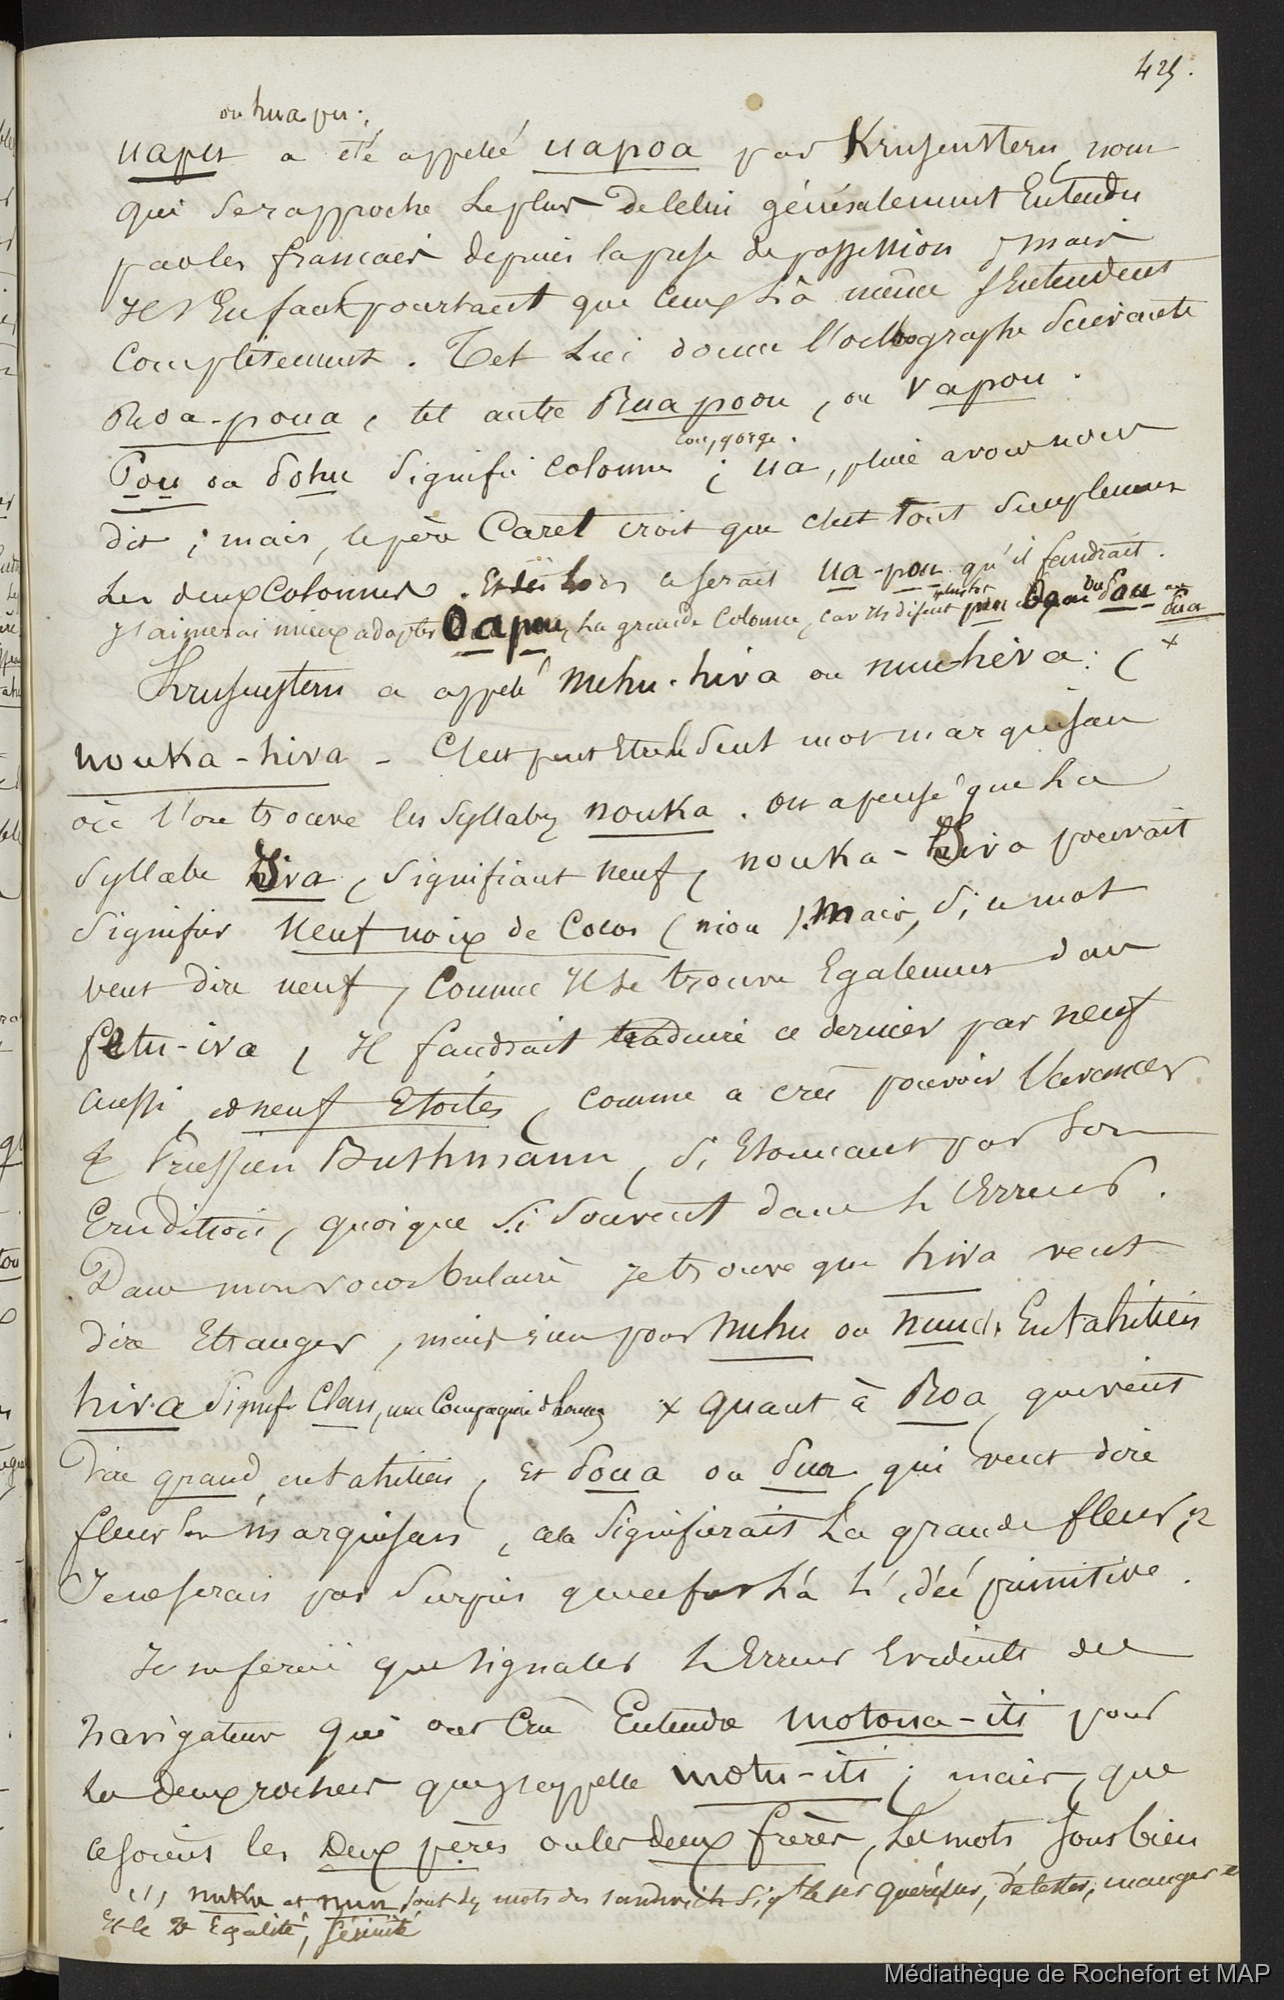 425.
ou hua pu.
uapu a été appellé uapoa par Krusenstern, nom
qui se rapproche le plus de celui généralement Entendu
par les français depuis la prise de possession ; mais
Il s'En faut pourtant que Ceux là même s'Entendent
Complètement. Tel lui donne l'orthographe suivante
Roa-poua, tel autre Rua poou, ou vapou.
cou, gorge.
Pou ou dohu signifie colonne ; ua, pluie avons nous
dit ; mais, le père Caret croit que c'est tout simplement
Les deux Colonnes. Et dès lors ce serait ua-pou qu'il faudrait.
J'aimerai mieux adopter Oapou, La grande Colonne, car ils disent plutôt
Krusenstern a appelé nuhu-hiva ou nuu-hiva : (x
nouka-hiva - C'est peut Etre le seul mot marquisan
où l'on trouve les syllabes nouka. on a pensé que la
syllabe Iva, signifiant neuf, nouka-Iva pouvait
signifier neuf noix de Cocos (niou). Mais, si ce mot
veut dire neuf, Comme Il se trouve Egalement dans
fetu-iva, Il faudrait traduire ce dernier par neuf
aussi, et neuf Etoiles, comme a cru pouvoir l'avancer
le Prussien Buthmann, si Etonnant par son
Erudition, quoique si souvent dans L'Erreur.
Dans mon vocabulaire je trouve que hiva veut
dire Etranger, mais rien pour nuhu ou nuu. En tahitien
hiva signifie Clan, une Compagnie d x quant à Roa, qui veut
dire grand, en tahitien, Et doua ou dua, qui veut dire
fleur en marquisan, cela signifierait La grande fleur, &
Je ne serais pas surpris que ce fut là l'idée primitive.
Je ne ferai que signaler L'Erreur Evidente des
navigateurs qui ont Cru Entendre motoua-iti pour
les deux rochers qu'on appelle motu-iti ; mais, que
ce soient les Deux pères ou les deux frères, Les mots sont bien
(1) nuku et nuu sont des mots des sandwich détester, manger
Et le 2e Egalité, sérénité
Médiathèque de Rochefort et MAP